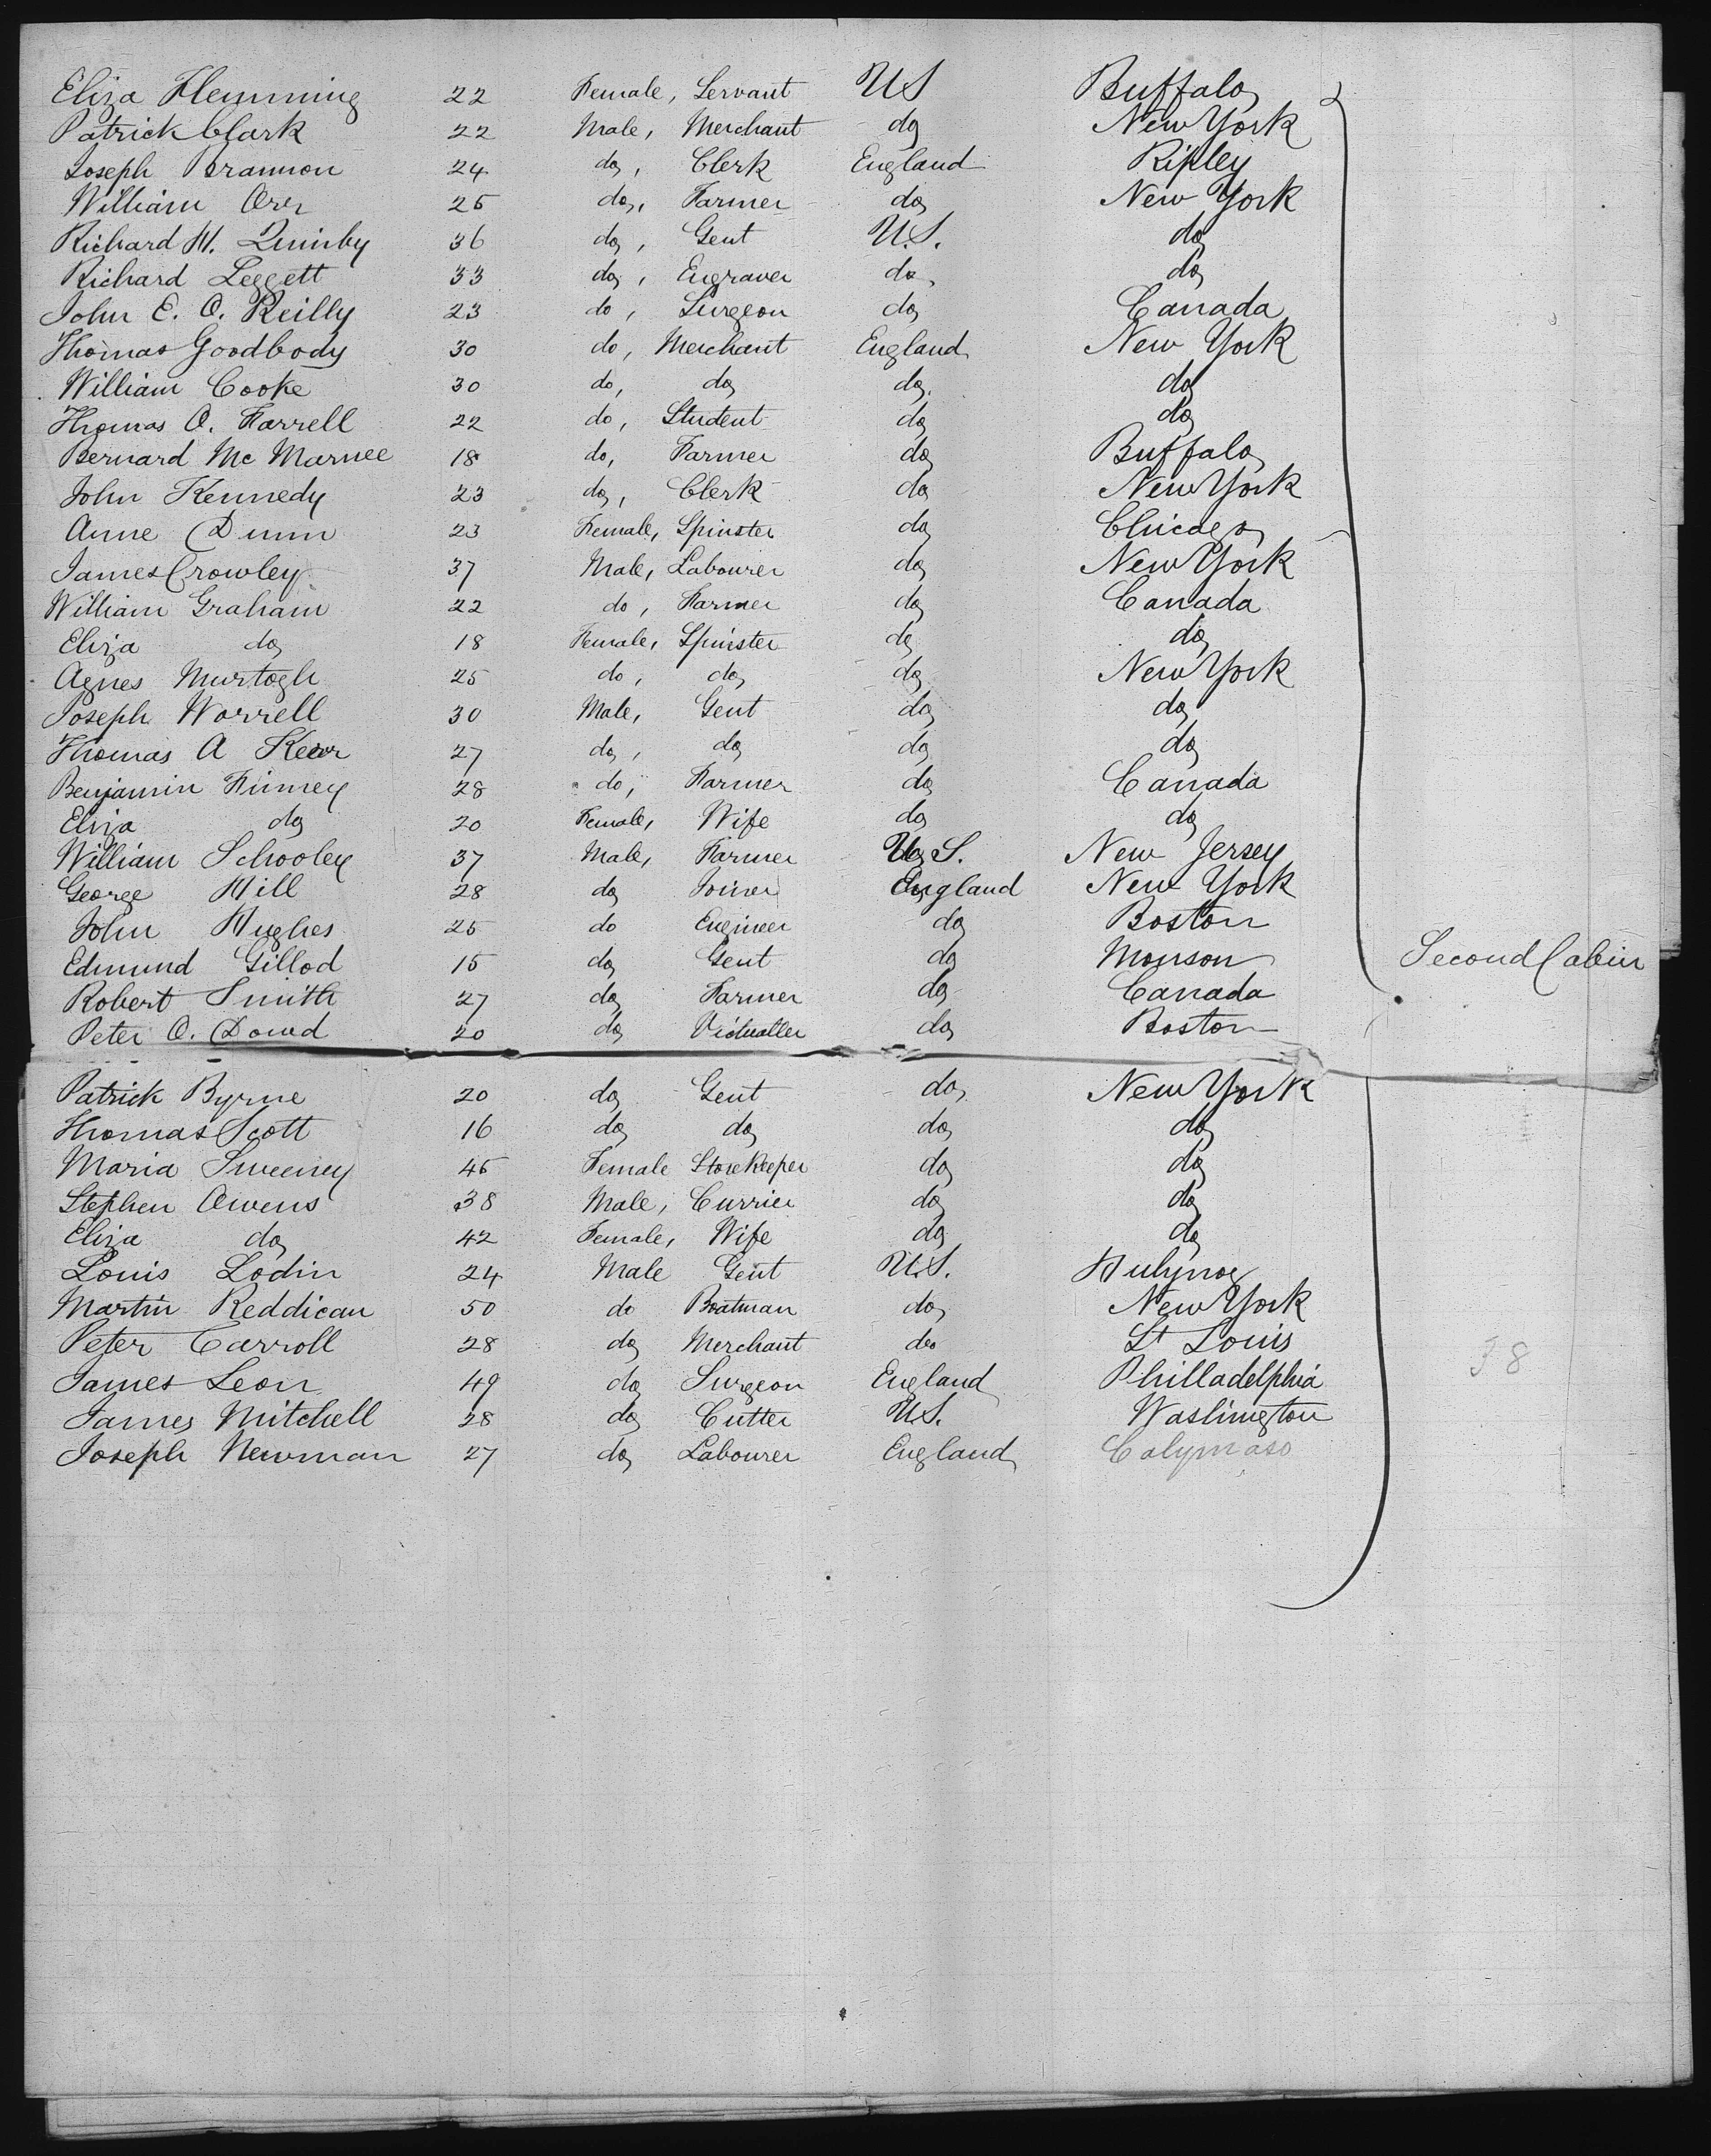 Eliza Flemming 22 Female, Servant US Buffalo
Patrick Clark 22 Male, Merchant do New York
Joseph Brannon 24 do, Clerk England Ripley
William Orr 25 do, Farmer do New York
Richard H. Quimby 36 do, Gent U.S. do
Richard Leggett 33 do, Engraver do do
John E. O. Reilly 23 do, Surgeon do Canada
Thomas Goodbody 30 do, Merchant England New York
William Cooke 30 do, do do do
Thomas O. Farrell 22 do, Student do do
Bernard Mc Marnee 18 do, Farmer do Buffalo
John Kennedy 23 do, Clerk do New York
Anne Dunn 23 Female, Spinster do Chicago
James Crowley 37 Male, Labourer do New York
William Graham 22 do, Farmer do Canada
Eliza do 18 Female, Spinster do do
Agnes Murtogh 25 do, do do New York
Joseph Worrell 30 Male, Gent do do
Thomas A Kerr 27 do, do do do
Benjamin Finney 28 do, Farmer do Canada
Eliza do 20 Female, Wife do do
William Schooley 37 Male, Farmer U.S. New Jersey
George Hill 28 do Joiner England New York
John Hughes 25 do Engineer do Boston
Edmund Gillod 15 do Gent do Monson Second Cabin
Robert Smith 27 do Farmer do Canada
Peter O. Dowd 20 do Victualler do Boston
Patrick Byrne 20 do Gent do New York
Thomas Scott 16 do do do do
Maria Sweeney 45 Female Storekeeper do do
Stephen Owens 38 Male, Currier do do
Eliza do 42 Female, Wife do do
Louis Lodin 24 Male Gent U.S.
Martin Reddican 50 do Boatman do New York
Peter Carroll 28 do Merchant do St Louis
James Leon 49 do Surgeon England Philladelphia 38
James Mitchell 28 do Cutter U.S. Washington
Joseph Newman 27 do Labourer England